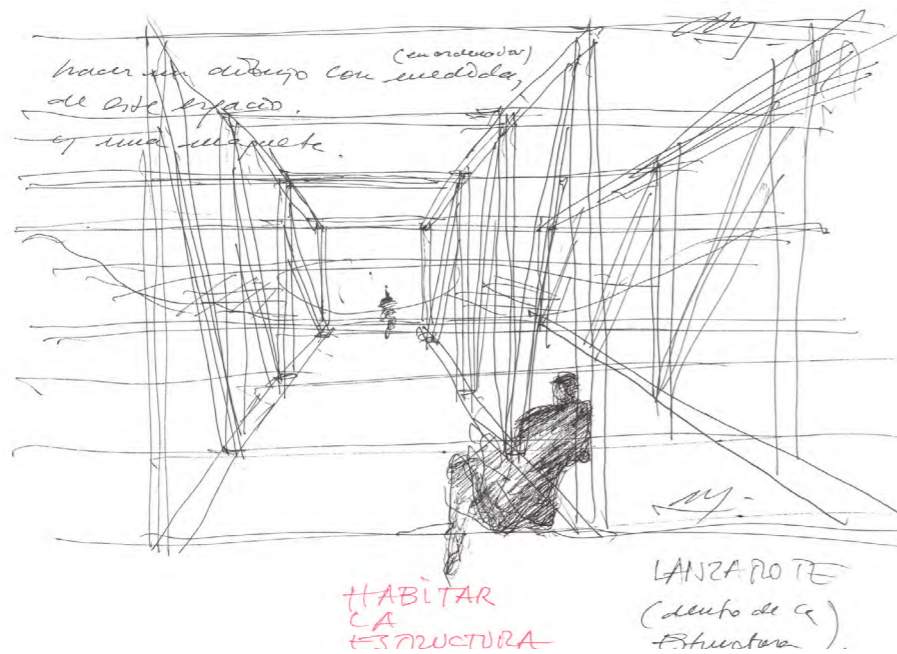 hacer un dibujo con medida,
(en ordenador)
de este espacio.
y una maqueta
HABITAR
LA
ESTRUCTURA
LANZAROTE
(dentro de la
Estructura).